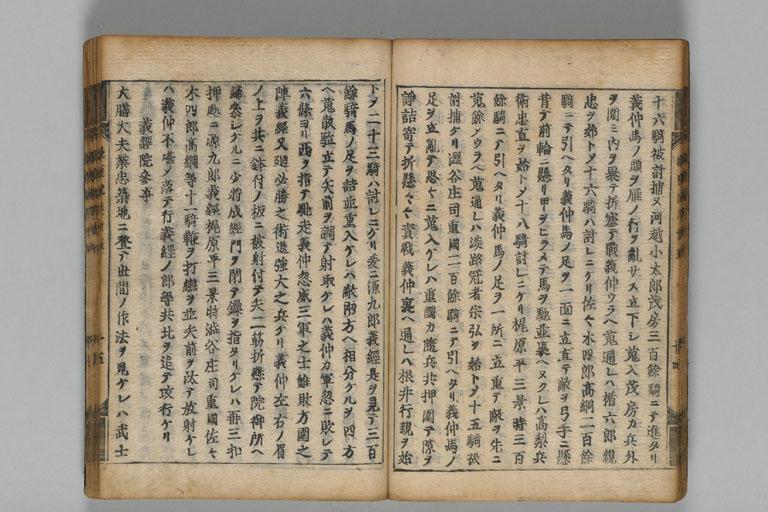 十六騎被討捕ヌ河越小太郎茂房三百余騎ニテ進タリ
義仲馬ノ頭ヲ雁ノ行ヲ乱サス立下シ蒐入茂房カ兵外
ヲ囲ミ内ヲ裹テ折塞テ戦義仲ウラヘ蒐通レハ楯六郎親
忠ヲ始トメ十六騎ハ討レニケリ佐々木四郎高綱二百余
騎ニテ引ヘタリ義仲馬ノ足ヲ一面ニ立直テ敵ヲ弓手ニ懸
背テ前輪ニ懸リ甲ヲヒラメテ馬ヲ馳並裏ヘヌクレハ高梨兵
衛忠直ヲ始トメ十八騎討レニケリ梶原平三景時三百
余騎ニテ引ヘタリ義仲馬ノ足ヲ一所ニ立重テ敵ヲ先ニ
蒐余ノウラヘ蒐通レハ淡路冠者宗弘ヲ始トメ十五騎被
討捕ケリ渋谷庄司重国二百余騎ニテ引ヘタリ義仲馬ノ
足ヲ立乱テ思々ニ蒐入ケレハ重国カ随兵共押囲テ隙ヲ
諍詰寄テ折懸々々責戦義仲裏ヘ通レハ根井行親ヲ始
トメ二十三騎ハ討レニケリ爰ニ源九郎義経是ヲ見テ三百
余騎馬ノ足ヲ詰並重入ケレハ敵両方ヘ相分ケルヲ四方
ヘ蒐散駈立テ矢前ヲ調テ射取ケレハ義仲カ軍忽ニ敗レテ
六条ヨリ西ヲ指テ馳走義仲忽威三軍之士雖敗方囲之
陣義経又廻必勝之術退強大之兵ケリ義仲左右ノ眉
ノ上ヲ共ニ鉢付ノ板ニ被射付テ矢二筋折懸テ院御所ヘ
帰参シケルニ少将成経門ヲ閉テ鏁ヲ指タリケレハ再三扣
押処ニ源九郎義経梶原平三景時渋谷庄司重国佐々
木四郎高綱等十一騎鞭ヲ打轡ヲ並矢前ヲ汰テ放射ケレ
ハ義仲不堪メ落テ行義経ノ郎等共北ヲ追テ攻行ケリ
義経院参事
大膳大夫業忠築地ニ登テ世間ノ作法ヲ見ケレハ武士